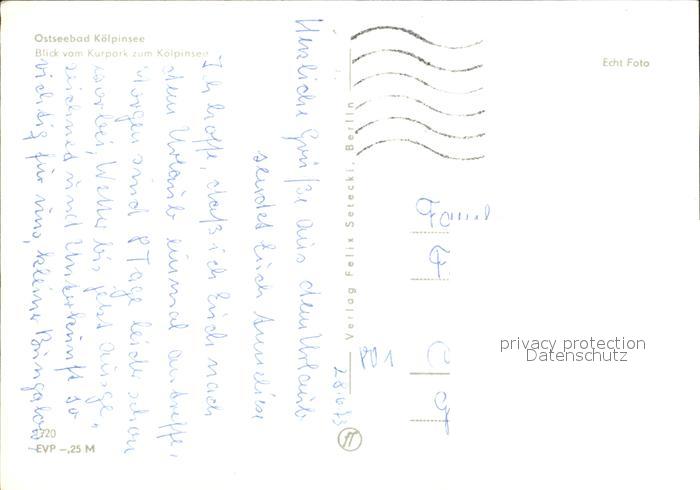 Ostseebad Kölpinsee
Blick vom Kurpark zum Kölpinsee
Echt Foto
Herzliche Grüße aus dem Urlaub
sendet Euch Anneliese
Ich hoffe, daß ich Euch nach
dem Urlaub einmal antreffe,
Morgen sind 8 Tage leider schon
vorbei, Wetter bis jetzt ausge-
zeichnet und Unterkunft so
richtig für uns, kleine Bungalows
Verlag Felix Setecki, Berlin
28.6.73
801
Fam.
privacy protection
Datenschutz
1720
EVP –,25 M